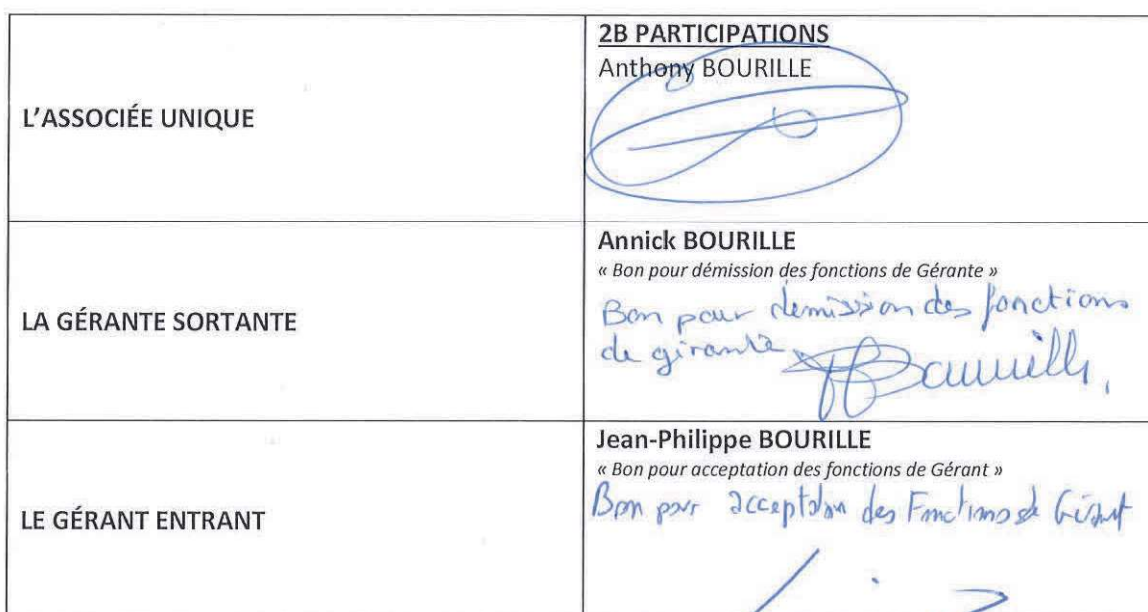 L'ASSOCIÉE UNIQUE
2B PARTICIPATIONS
Anthony BOURILLE
LA GÉRANTE SORTANTE
Annick BOURILLE
« Bon pour démission des fonctions de Gérante »
Bon pour démission des fonctions
de gérante
Bourille
LE GÉRANT ENTRANT
Jean-Philippe BOURILLE
« Bon pour acceptation des fonctions de Gérant »
Bon pour acceptation des Fonctions de Gérant